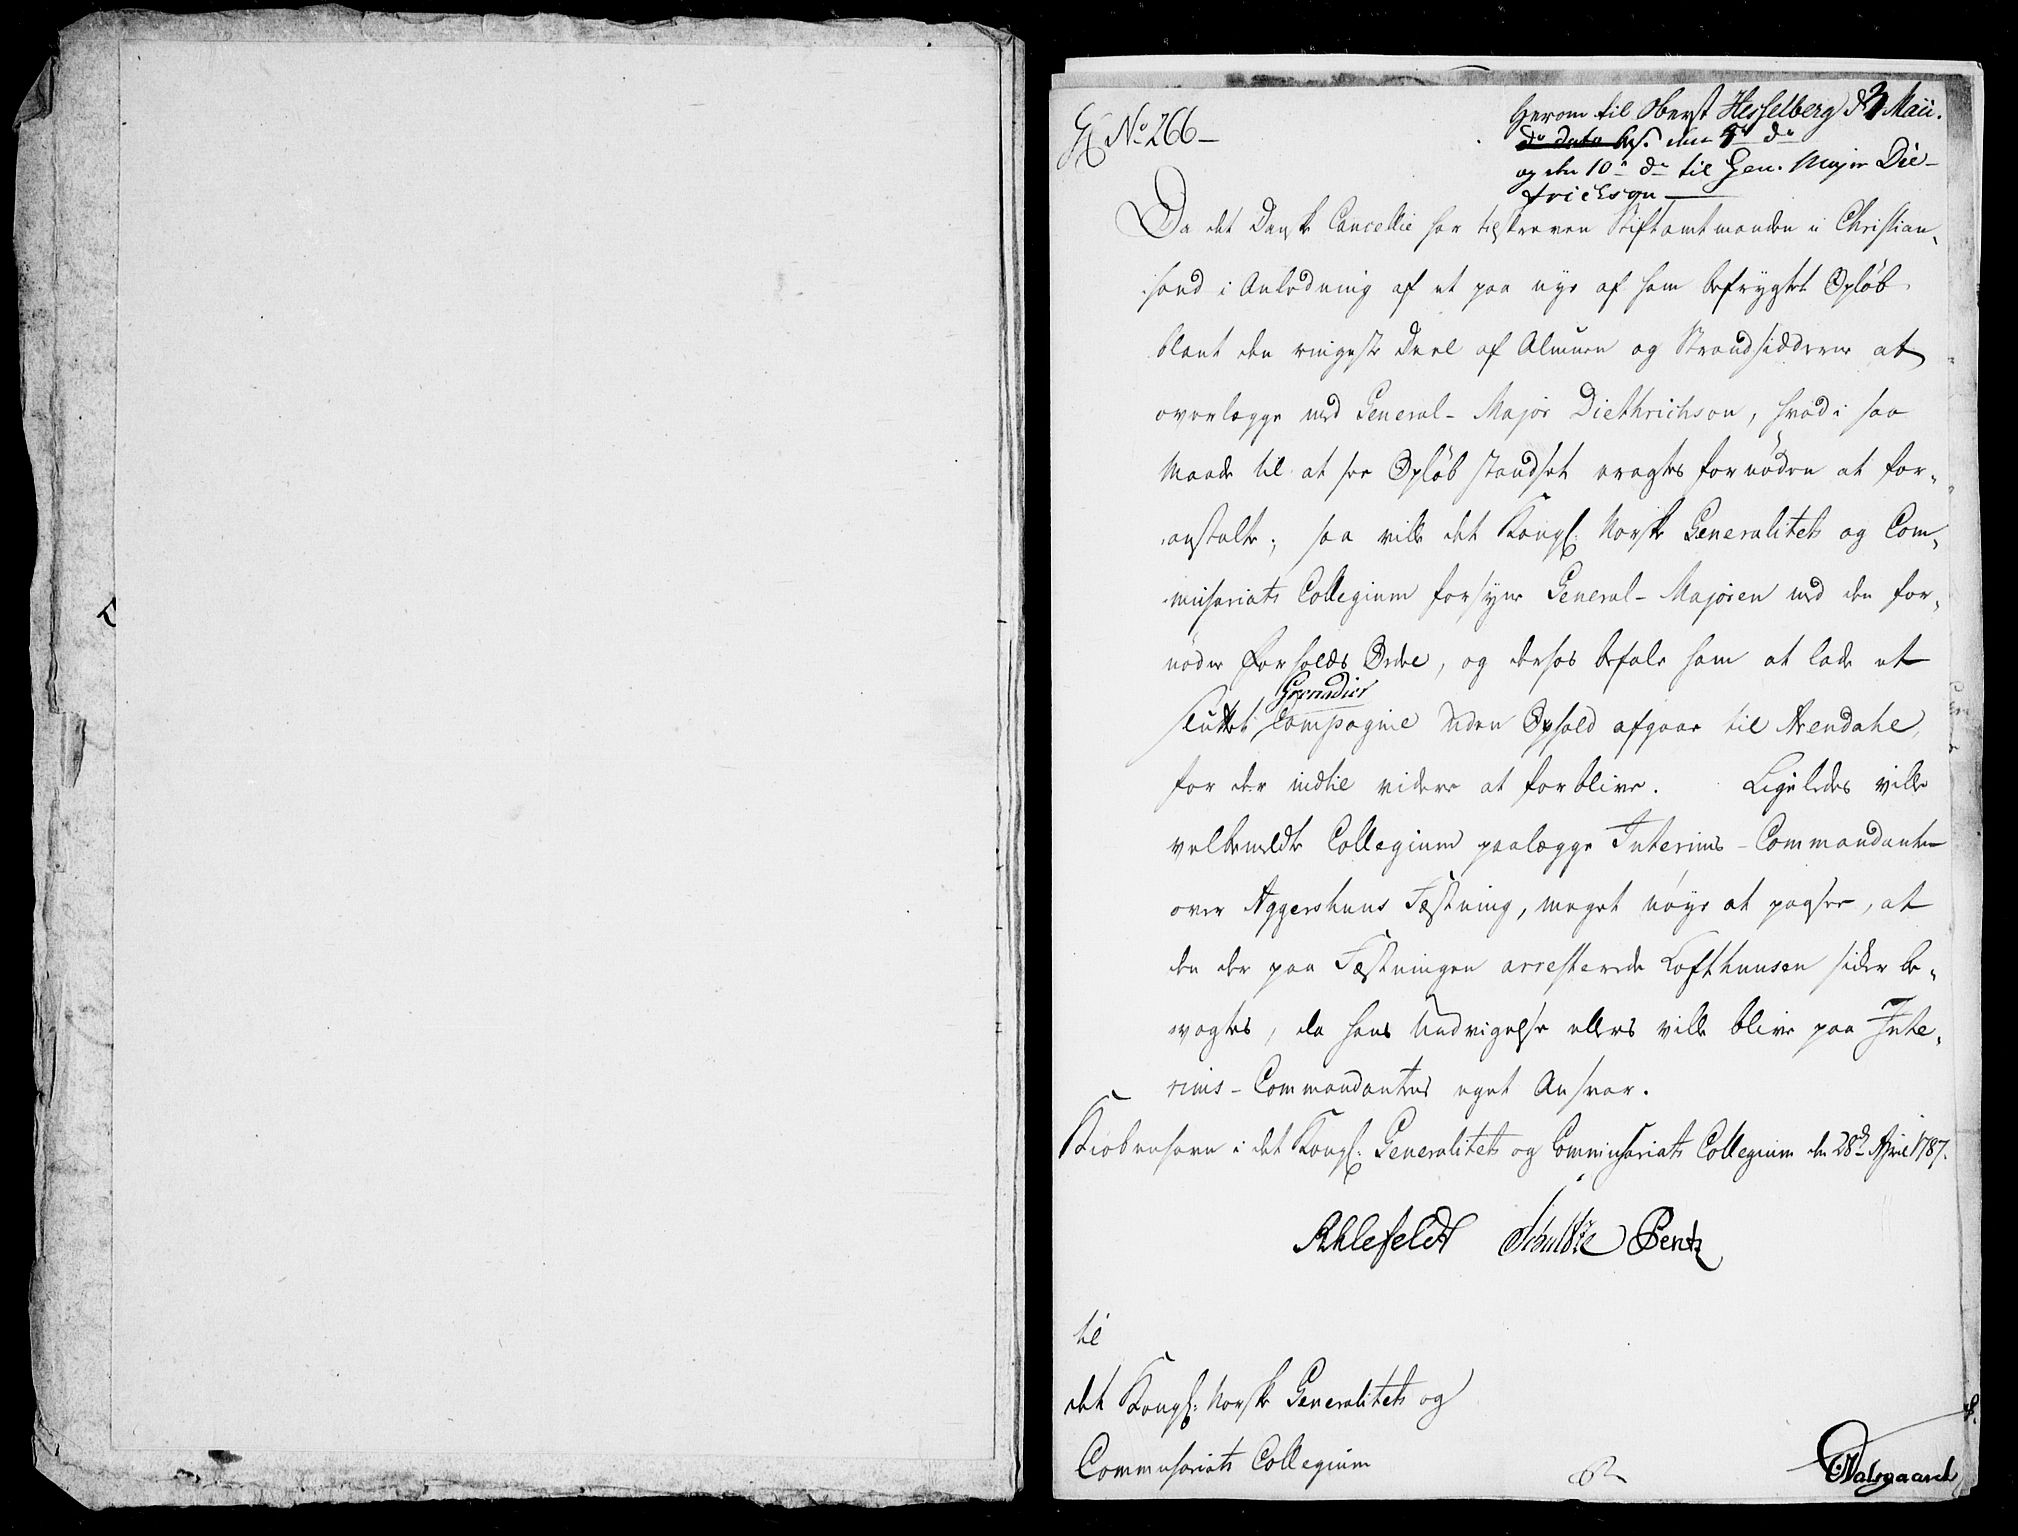 No 266
Herom til Oberst Hesselberg d 3 Maii.
do dato
og den 10de do til Gen. Major Die-
trichson
Da det Danske Cancellie har tilskreven Stiftamtmanden i Christian-
sand i Anledning af et paa nye af ham befrygtet Opløb
blant den ringeste Deel af Almuen og Strandsidderne at
overlægge med General-Major Diethrichson, hvad i saa
Maade til at see Opløb standset eragtes fornøden at for-
anstalte; saa ville det Kongl: Norske Generalitets og Com-
missariats Collegium forsyne General-Majoren med den for-
nødne Forholds Ordre, og derhos befale ham at lade et
Grenadier
sluttet Compagnie uden Ophold afgaae til Arendahl,
for der indtil videre at forblive. Ligeledes ville
velbemeldte Collegium paalægge Interims-Commandanten
over Aggershuus Fæstning, meget nøye at paasee, at
den der paa Fæstningen arresterede Lofthuusen sikker be-
vogtes, da hans Undvigelse ellers ville blive paa Inte-
rims-Commandantens eget Ansvar.
Kiøbenhavn i det Kongl: Generalitets og Commissariats Collegium den 28de April 1787.
Ahlefeldt Schultze Bentz
til
det Kongl: Norske Generalitets og
Commissariats Collegium